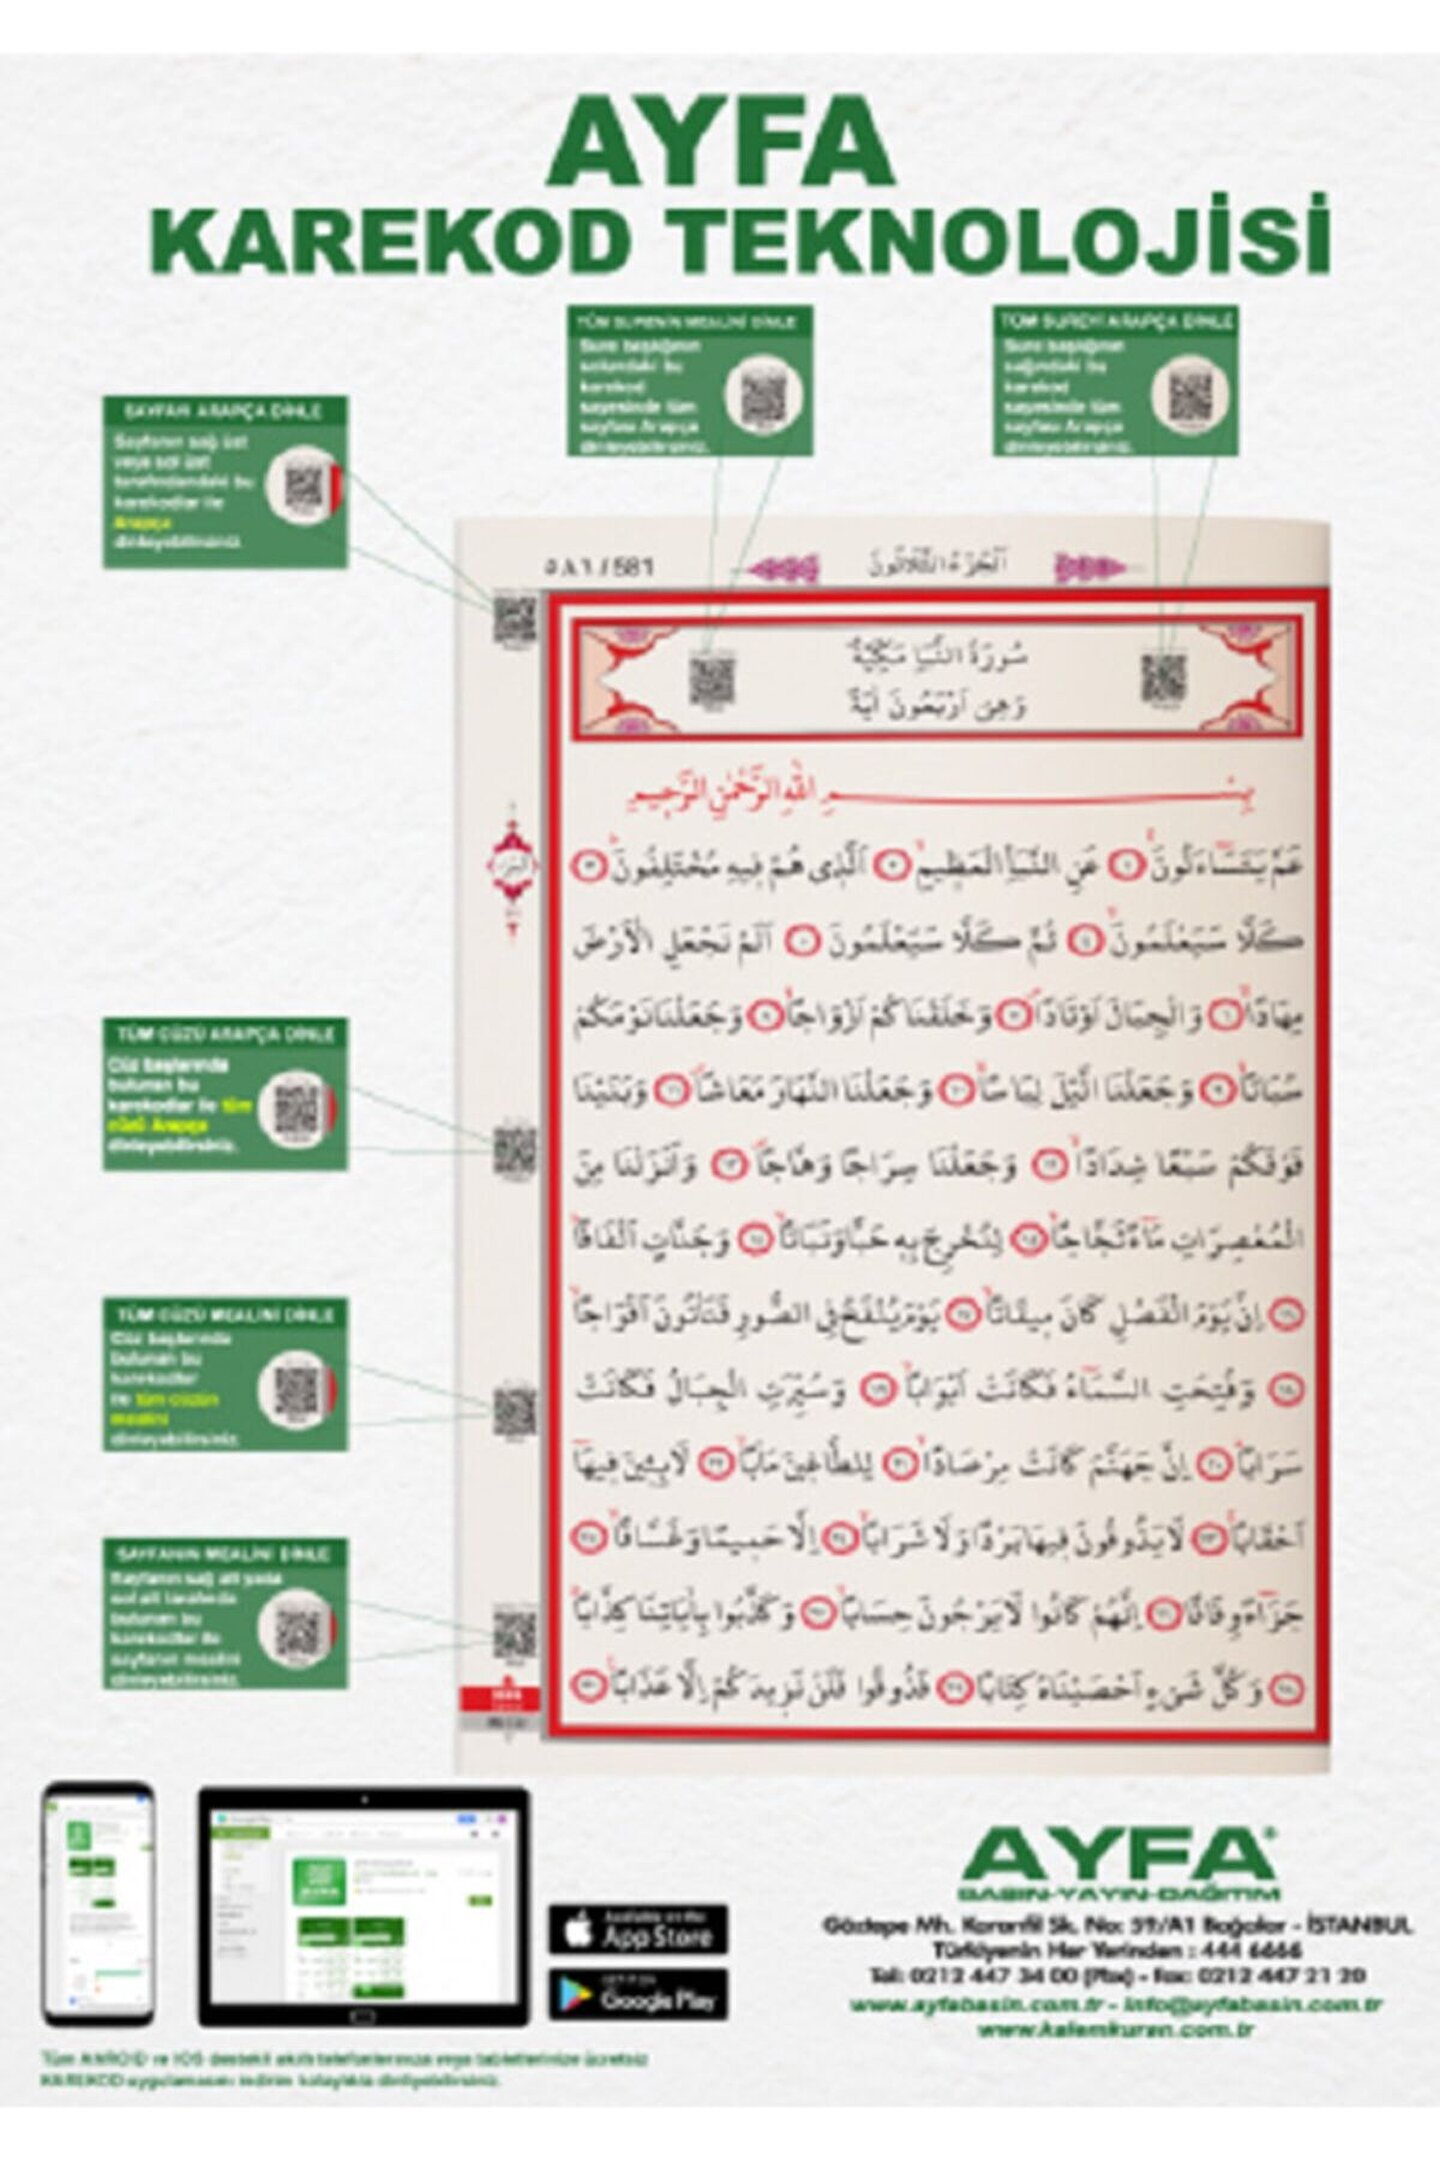 AYFA
KAREKOD TEKNOLOJİSİ
TÜM SURENİN MEALİNİ DİNLE
Sure başlığının
solundaki bu
karekod
sayesinde tüm
sayfayı Arapça
dinleyebilirsiniz.
TÜM SUREYİ ARAPÇA DİNLE
Sure başlığının
sağındaki bu
karekod
sayesinde tüm
sayfayı Arapça
dinleyebilirsiniz.
SAYFAYI ARAPÇA DİNLE
Sayfanın sağ üst
veya sol üst
tarafındaki bu
karekodlar ile
Arapça
dinleyebilirsiniz.
٥٨١ / 581
اَلْجُزْءُ الثَّلَاثُونَ
سُورَةُ النَّبَأِ مَكِّيَّةٌ
وَهِيَ اَرْبَعُونَ اٰيَةً
بِسْمِ اللّٰهِ الرَّحْمٰنِ الرَّحِيمِ
عَمَّ يَتَسَٓاءَلُونَۚ ﴿١﴾ عَنِ النَّبَأِ الْعَظِيمِۙ ﴿٢﴾ اَلَّذِى هُمْ فِيهِ مُخْتَلِفُونَۜ ﴿٣﴾
كَلَّا سَيَعْلَمُونَۙ ﴿٤﴾ ثُمَّ كَلَّا سَيَعْلَمُونَ ﴿٥﴾ اَلَمْ نَجْعَلِ الْاَرْضَ
مِهَادًاۙ ﴿٦﴾ وَالْجِبَالَ اَوْتَادًاۖ ﴿٧﴾ وَخَلَقْنَاكُمْ اَزْوَاجًاۙ ﴿٨﴾ وَجَعَلْنَا نَوْمَكُمْ
سُبَاتًاۙ ﴿٩﴾ وَجَعَلْنَا الَّيْلَ لِبَاسًاۙ ﴿١٠﴾ وَجَعَلْنَا النَّهَارَ مَعَاشًاۖ ﴿١١﴾ وَبَنَيْنَا
فَوْقَكُمْ سَبْعًا شِدَادًاۙ ﴿١٢﴾ وَجَعَلْنَا سِرَاجًا وَهَّاجًاۖ ﴿١٣﴾ وَاَنْزَلْنَا مِنَ
الْمُعْصِرَاتِ مَٓاءً ثَجَّاجًاۙ ﴿١٤﴾ لِنُخْرِجَ بِهِ حَبًّا وَنَبَاتًاۙ ﴿١٥﴾ وَجَنَّاتٍ اَلْفَافًاۜ
﴿١٦﴾ اِنَّ يَوْمَ الْفَصْلِ كَانَ مِيقَاتًاۙ ﴿١٧﴾ يَوْمَ يُنْفَخُ فِى الصُّورِ فَتَأْتُونَ اَفْوَاجًاۙ
﴿١٨﴾ وَفُتِحَتِ السَّمَٓاءُ فَكَانَتْ اَبْوَابًاۙ ﴿١٩﴾ وَسُيِّرَتِ الْجِبَالُ فَكَانَتْ
سَرَابًاۜ ﴿٢٠﴾ اِنَّ جَهَنَّمَ كَانَتْ مِرْصَادًاۙ ﴿٢١﴾ لِلطَّاغِينَ مَاٰبًاۙ ﴿٢٢﴾ لَابِثِينَ فِيهَٓا
اَحْقَابًاۚ ﴿٢٣﴾ لَا يَذُوقُونَ فِيهَا بَرْدًا وَلَا شَرَابًاۙ ﴿٢٤﴾ اِلَّا حَمِيمًا وَغَسَّاقًاۙ ﴿٢٥﴾
جَزَٓاءً وِفَاقًاۜ ﴿٢٦﴾ اِنَّهُمْ كَانُوا لَا يَرْجُونَ حِسَابًاۙ ﴿٢٧﴾ وَكَذَّبُوا بِاٰيَاتِنَا كِذَّابًاۜ
﴿٢٨﴾ وَكُلَّ شَىْءٍ اَحْصَيْنَاهُ كِتَابًاۙ ﴿٢٩﴾ فَذُوقُوا فَلَنْ نَزِيدَكُمْ اِلَّا عَذَابًا۟ ﴿٣٠﴾
TÜM CÜZÜ ARAPÇA DİNLE
Cüz başlarında
bulunan bu
karekodlar ile tüm
cüzü Arapça
dinleyebilirsiniz.
TÜM CÜZÜ MEALİNİ DİNLE
Cüz başlarında
bulunan bu
karekodlar
ile tüm cüzün
mealini
dinleyebilirsiniz.
SAYFANIN MEALİNİ DİNLE
Sayfanın sağ alt yada
sol alt tarafında
bulunan bu
karekodlar ile
sayfanın mealini
dinleyebilirsiniz.
Available on the
App Store
Google Play
AYFA
BASIN-YAYIN-DAĞITIM
Göztepe Mh. Karanfil Sk. No: 59/A1 Bağcılar - İSTANBUL
Türkiyenin Her Yerinden : 444 6666
Tel: 0212 447 34 00 (Pbx) - Fax: 0212 447 21 20
www.ayfabasin.com.tr - info@ayfabasin.com.tr
www.kalemkuran.com.tr
Tüm ANROID ve IOS destekli akıllı telefonlarınıza veya tabletlerinize ücretsiz
KAREKOD uygulamasını indirin kolaylıkla dinleyebilirsiniz.